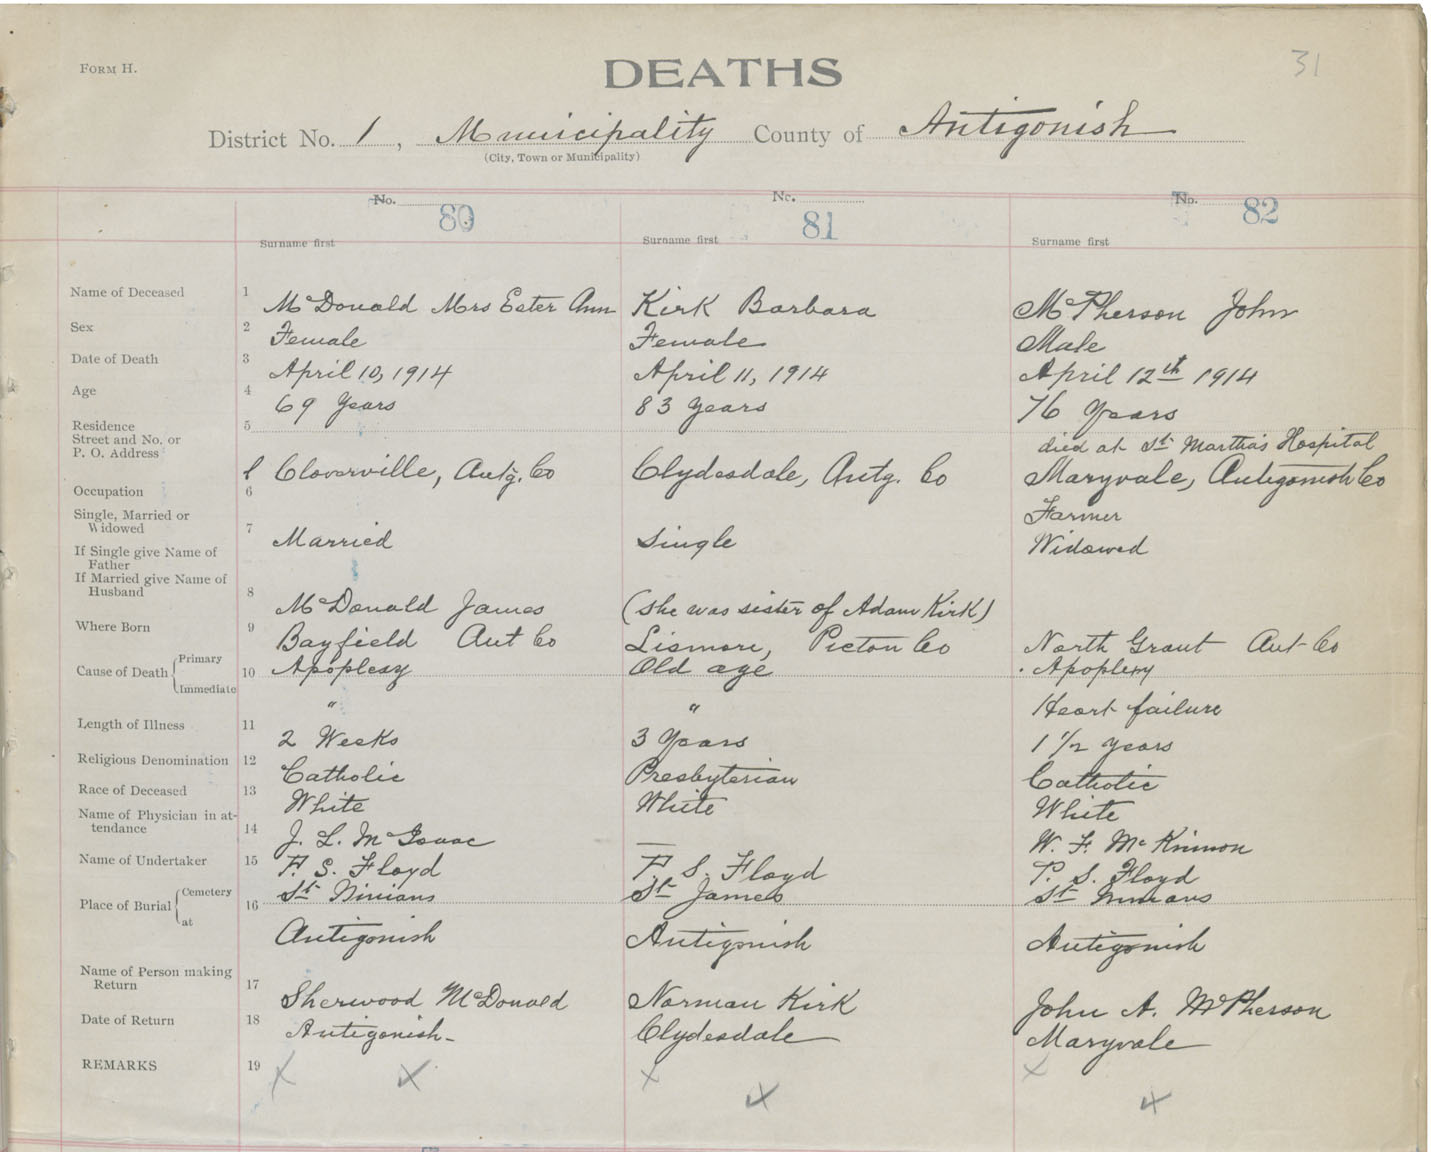 31
FORM H.
DEATHS
District No. 1, Municipality County of Antigonish
(City, Town or Municipality)
No. 80 No. 81 No. 82
Surname first Surname first Surname first
Name of Deceased 1 McDonald Mrs Ester Ann Kirk Barbara McPherson John
Sex 2 Female Female Male
Date of Death 3 April 10, 1914 April 11, 1914 April 12th 1914
Age 4 69 Years 83 Years 76 Years
Residence 5
Street and No. or died at St. Martha's Hospital
P. O. Address Cloverville, Antg. Co Clydesdale, Antg. Co Maryvale, Antigonish Co
Occupation 6 Farmer
Single, Married or
Widowed 7 Married Single Widowed
If Single give Name of
Father
If Married give Name of
Husband 8 McDonald James (she was sister of Adam Kirk)
Where Born 9 Bayfield Ant Co Lismore, Picton Co North Grant Ant Co
Cause of Death Primary 10 Apoplexy Old age Apoplexy
Immediate " " Heart failure
Length of Illness 11 2 Weeks 3 Years 1 1/2 years
Religious Denomination 12 Catholic Presbyterian Catholic
Race of Deceased 13 White White White
Name of Physician in at-
tendance 14 J. L. McIsaac — W. F. McKinnon
Name of Undertaker 15 F. S. Floyd F. S. Floyd T. S. Floyd
Place of Burial Cemetery 16 St Ninians St James St Ninians
at Antigonish Antigonish Antigonish
Name of Person making
Return 17 Sherwood McDonald Norman Kirk John A. McPherson
Date of Return 18 Antigonish Clydesdale Maryvale
REMARKS 19 x x x x x x